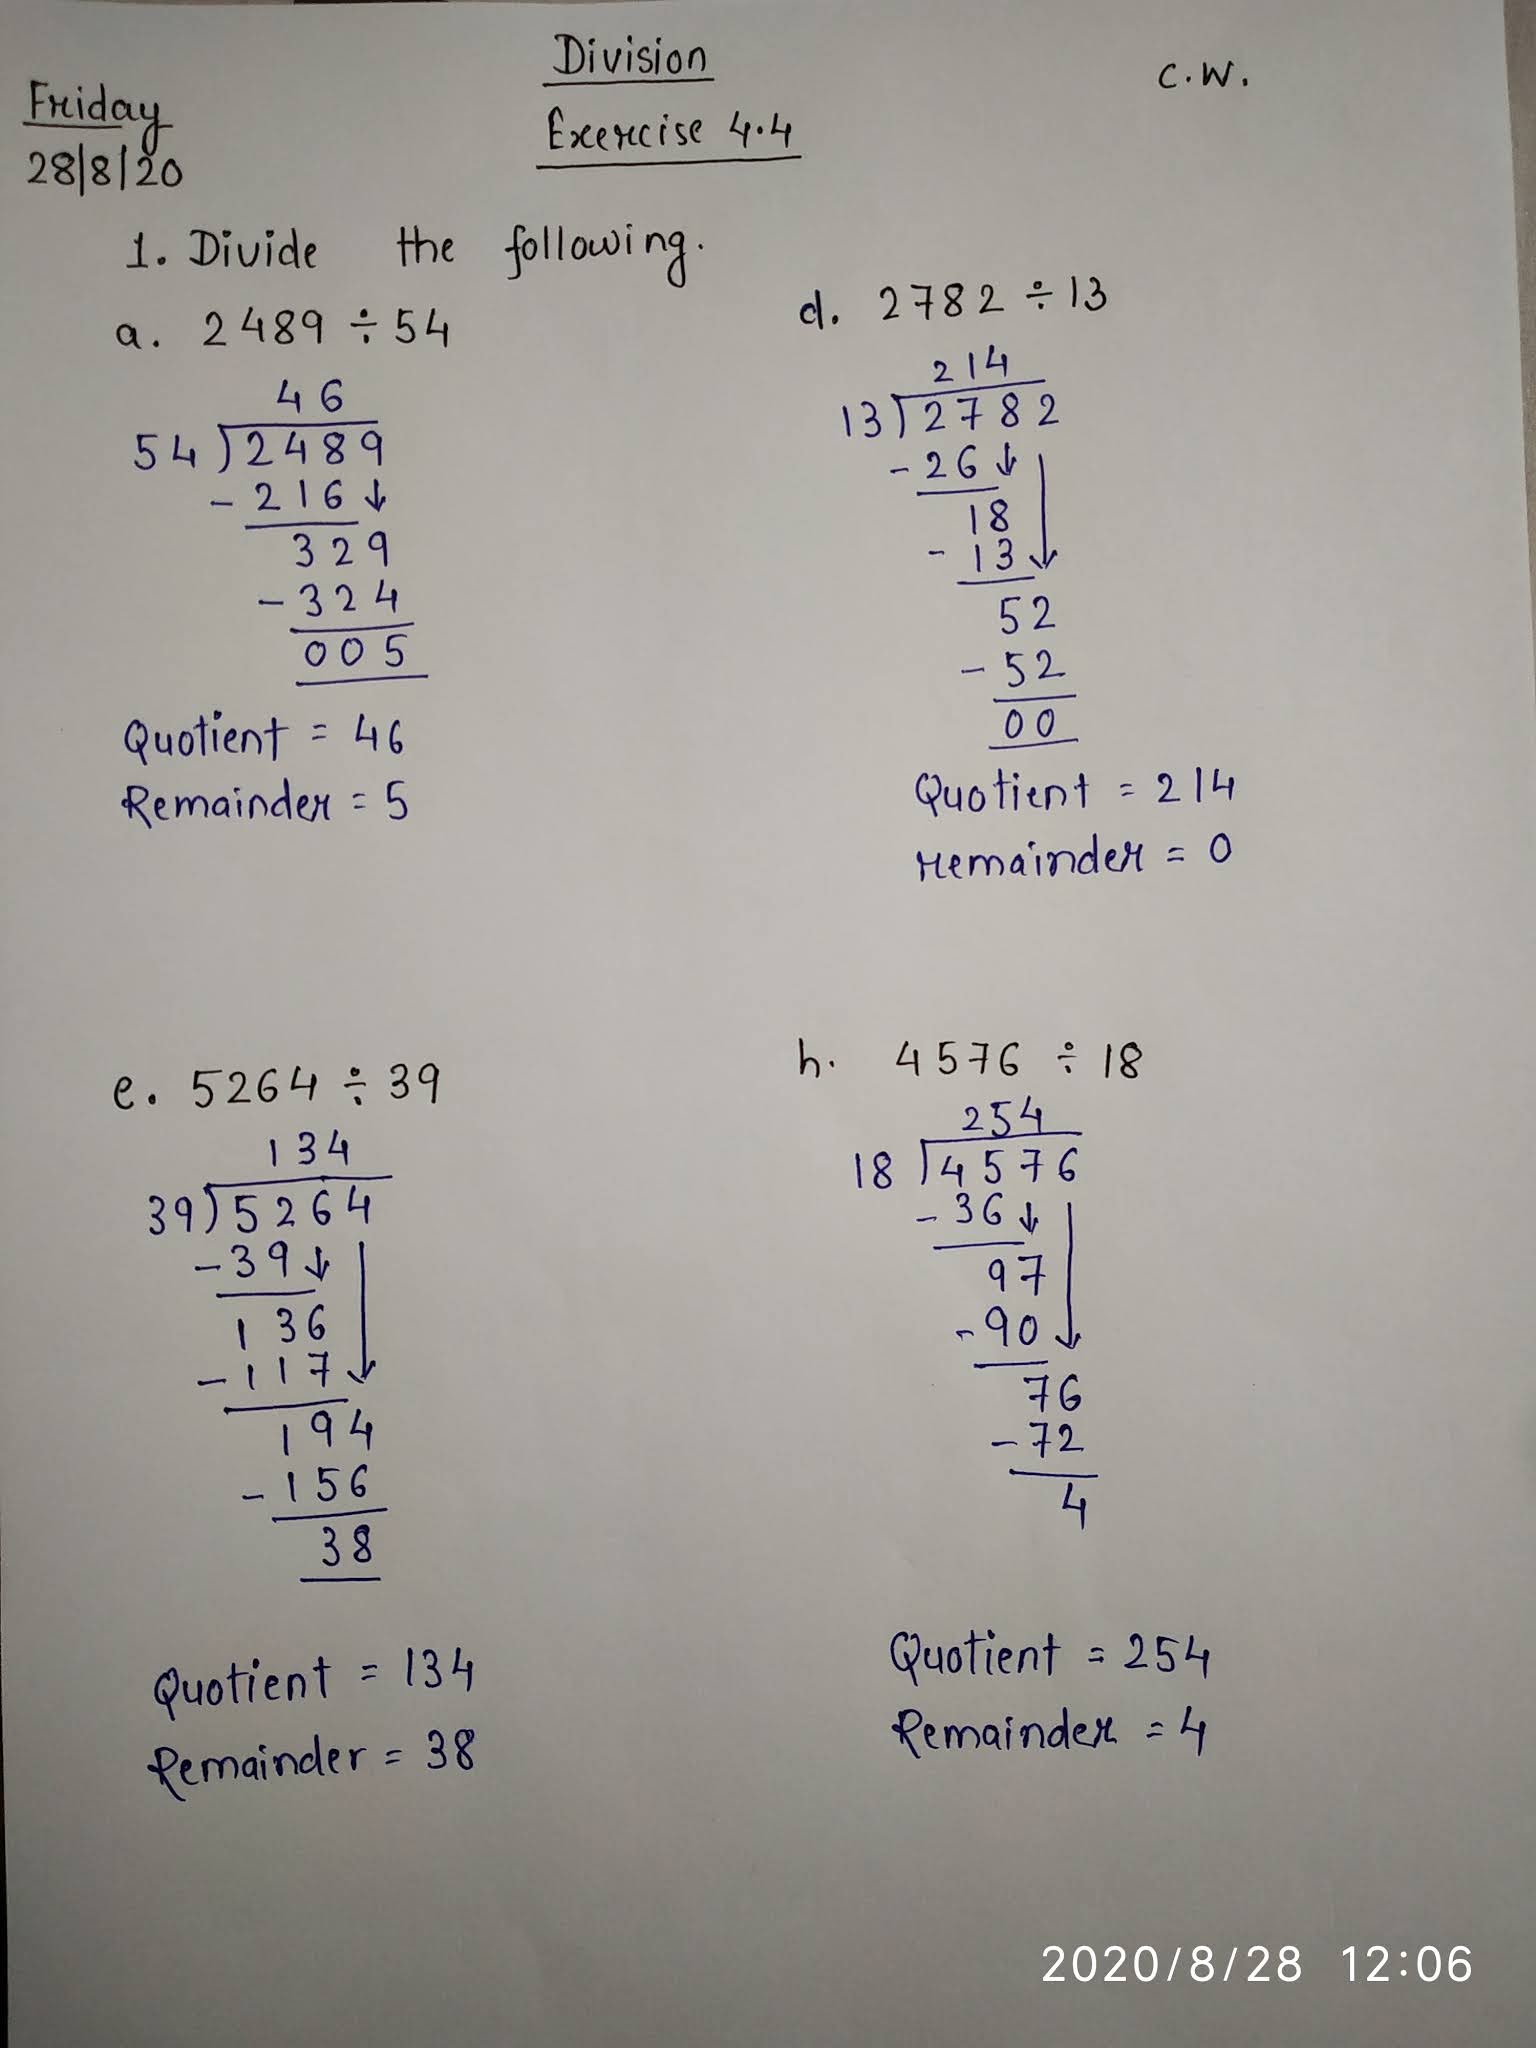 Division
C.W.
Friday
Exercise 4.4
28/8/20
1. Divide the following.
a. 2489 ÷ 54
46
54)2489
- 216↓
329
- 324
005
Quotient = 46
Remainder = 5
d. 2782 ÷ 13
214
13)2782
- 26↓
18
- 13↓
52
- 52
00
Quotient = 214
remainder = 0
e. 5264 ÷ 39
134
39)5264
- 39↓
136
- 117↓
194
- 156
38
Quotient = 134
Remainder = 38
h. 4576 ÷ 18
254
18)4576
- 36↓
97
- 90↓
76
- 72
4
Quotient = 254
Remainder = 4
2020/8/28 12:06